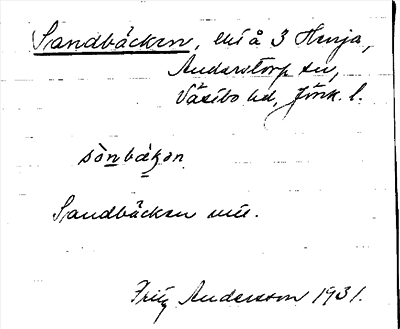 Sandbäcken, å 3 Henja,
Anderstorp sn,
Västbo hd, Jönk. l.
sònbækən
Sandbäcken
Fritz Andersson 1931.